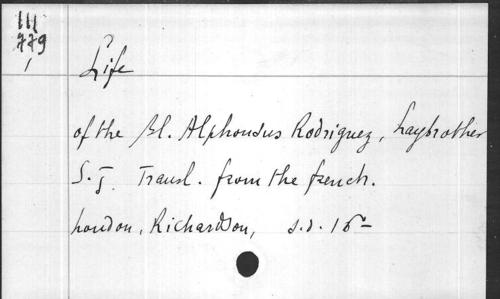 III
779
1
Life
of the Bl. Alphonsus Rodriguez, Laybrother
S. J. Transl. from the french.
London, Richardson, s.d. 16°